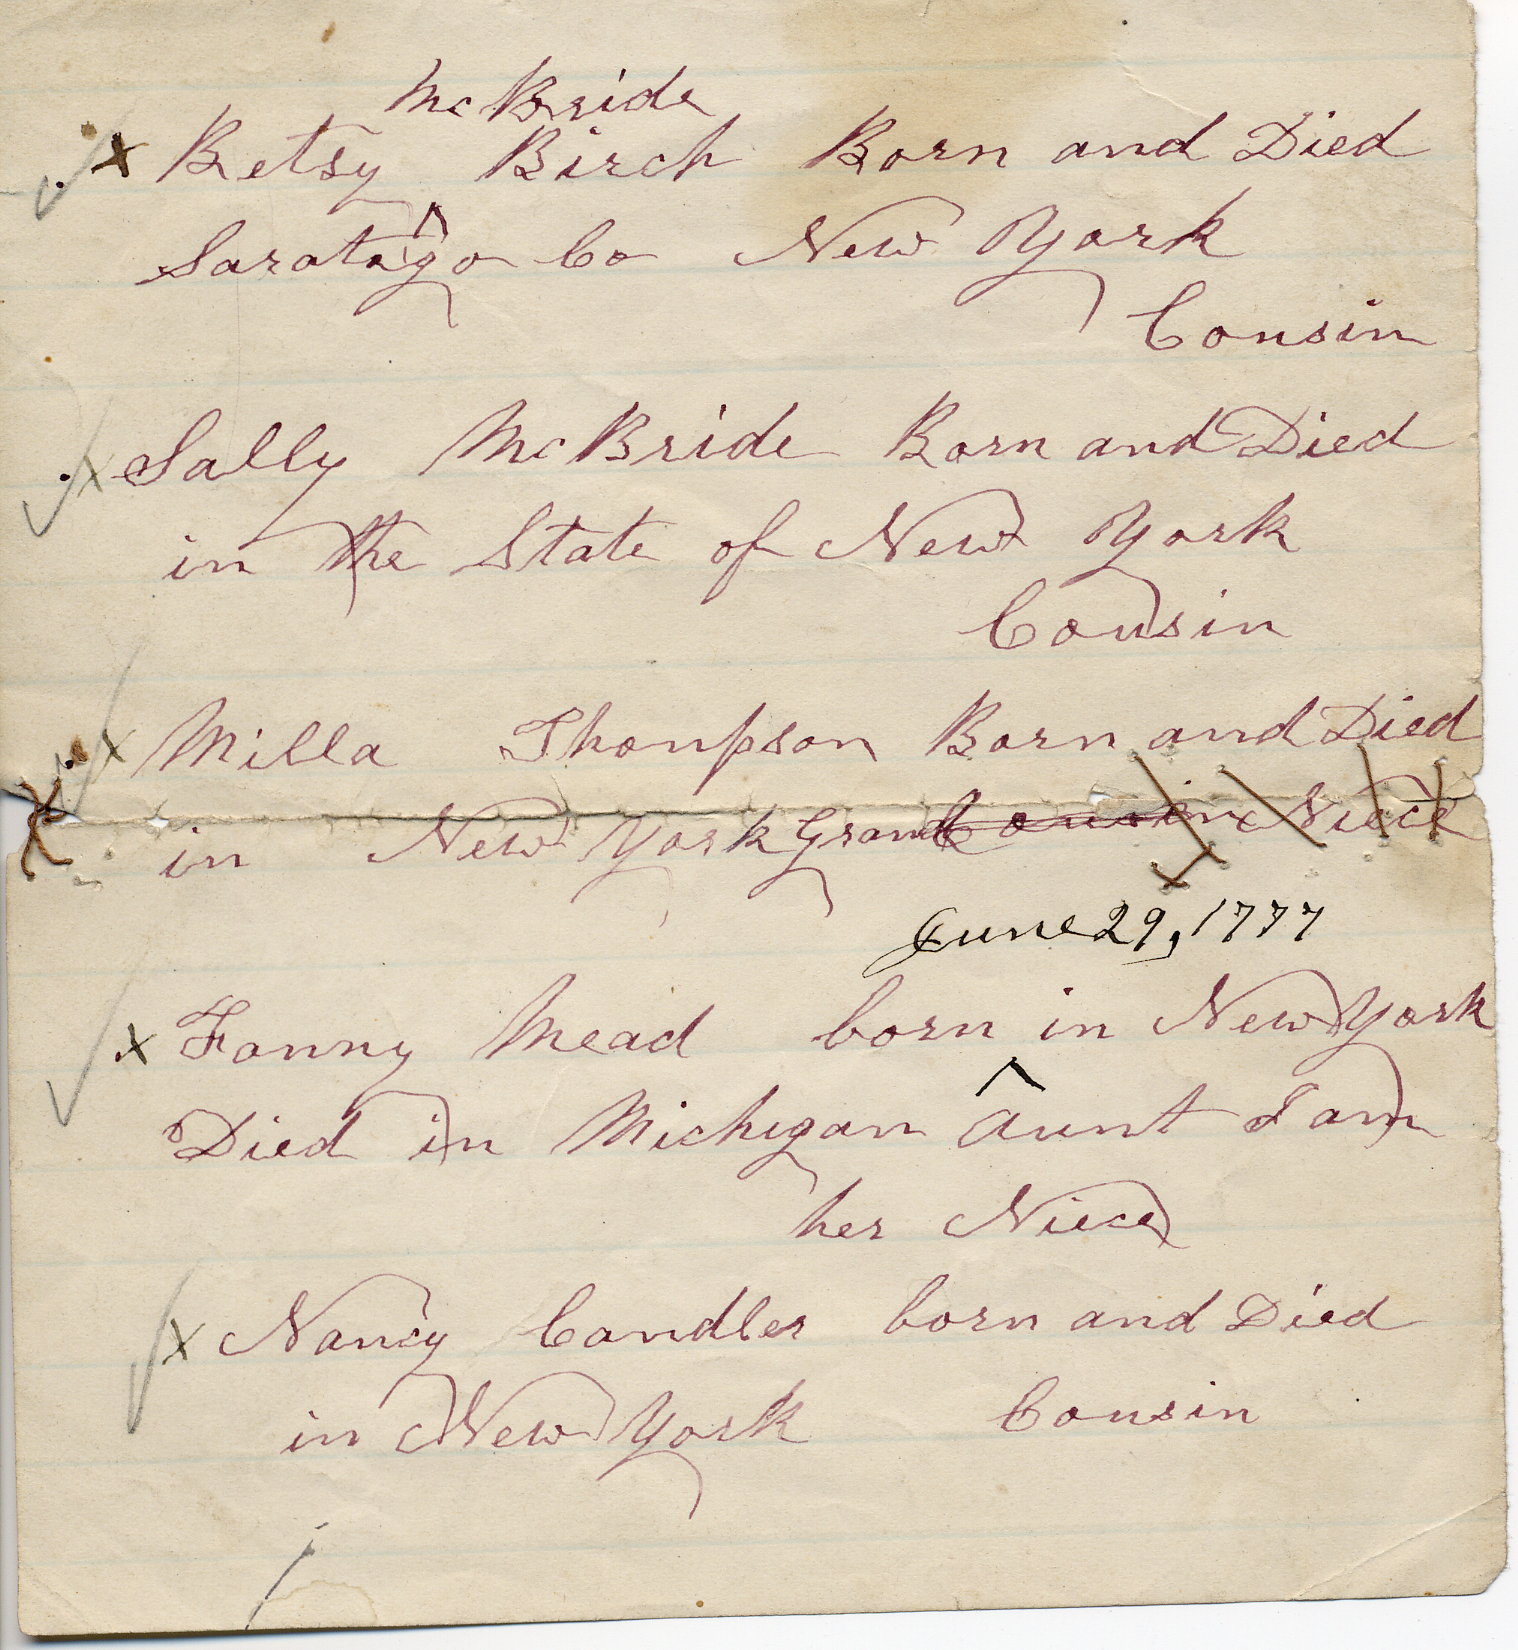 McBride
x Betsy ^ Birch Born and Died
Saratago Co New York
Cousin
x Sally McBride Born and Died
in the State of New York
Cousin
x Milla Thonpson Born and Died
in New York Grand Cousin Niece
June 29, 1777
x Fanny Mead born in New York
Died in Michigan ^ Aunt I am
her Niece
x Nancy Candler born and Died
in New York Cousin